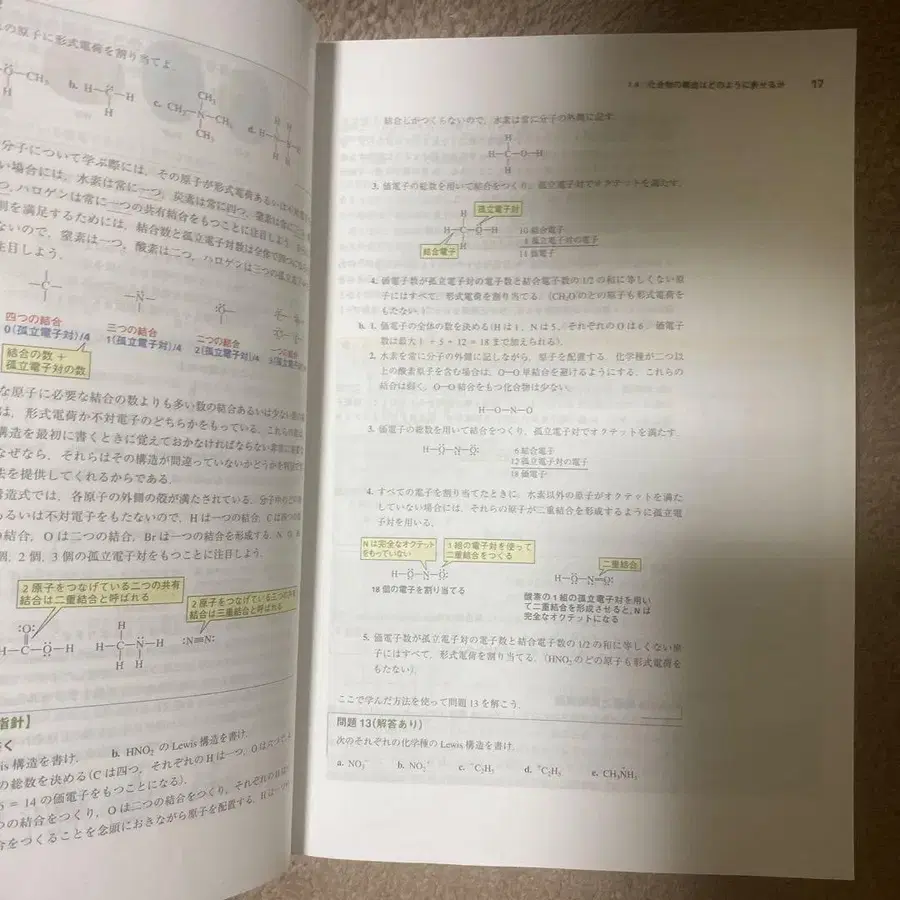 の原子に形式電荷を割り当てよ.
CH₃
b. H—C—H
c. CH₃—N—CH₃
CH₃
d. H—N—
分子について学ぶ際には,その原子が形式電荷あるいは
い場合には,水素は常に一つ,炭素は常に四つ,窒素は常に
つ,ハロゲンは常に一つの共有結合をもつことに注目しよう.
則を満足するためには,結合数と孤立電子対数は全体で四つに
ないので,窒素は一つ,酸素は二つ,ハロゲンは三つの孤立
注目しよう.
四つの結合
0(孤立電子対)/4
三つの結合
1(孤立電子対)/4
二つの結合
2(孤立電子対)/4
結合の数 +
孤立電子対の数
な原子に必要な結合の数よりも多い数の結合あるいは少ない
は,形式電荷か不対電子のどちらかをもっている.これらの
構造を最初に書くときに覚えておかなければならない非常に
なぜなら,それらはその構造が間違っていないかどうかを
法を提供してくれるからである.
構造式では,各原子の外側の殻が満たされている.分子中の
あるいは不対電子をもたないので,Hは一つの結合,Cは四つの
の結合,Oは二つの結合,Brは一つの結合を形成する.
個,2個,3個の孤立電子対をもつことに注目しよう.
2原子をつなげている二つの共有
結合は二重結合と呼ばれる
2原子をつなげている三つの共有
結合は三重結合と呼ばれる
:O:
H—C—Ö—H
H—C—N—H
:N≡N:
指針】
く
is 構造を書け.
b. HNO₂ の Lewis 構造を書け.
の総数を決める(Cは四つ,それぞれのHは一つ,Oは六つ
6 = 14 の価電子をもつことになる).
つの結合をつくり,Oは二つの結合をつくり,それぞれのHは
合をつくることを念頭におきながら原子を配置する.Hは
1・4 化合物の構造はどのように表せるか 17
結合しかつくらないので,水素は常に分子の外側に記す.
H
H—C—O—H
H
3. 価電子の総数を用いて結合をつくり,孤立電子対でオクテットを満たす.
孤立電子対
H
H—C—Ö—H
H
結合電子
10 結合電子
4 孤立電子対の電子
14 価電子
4. 価電子数が孤立電子対の電子数と結合電子数の 1/2 の和に等しくない原
子にはすべて,形式電荷を割り当てる.(CH₄Oのどの原子も形式電荷を
もたない.)
b. 1. 価電子の全体の数を決める(Hは1,Nは5,それぞれのOは6,価電子
数は最大 1 + 5 + 12 = 18 まで加えられる).
2. 水素を常に分子の外側に記しながら,原子を配置する.化学種が二つ以
上の酸素原子を含む場合は,O—O 単結合を避けるようにする.これらの
結合は弱く,O—O 結合をもつ化合物は少ない.
H—O—N—O
3. 価電子の総数を用いて結合をつくり,孤立電子対でオクテットを満たす.
H—Ö—N—Ö:
6 結合電子
12 孤立電子対の電子
18 価電子
4. すべての電子を割り当てたときに,水素以外の原子がオクテットを満た
していない場合には,それらの原子が二重結合を形成するように孤立電
子対を用いる.
Nは完全なオクテット
をもっていない
1組の電子対を使って
二重結合をつくる
二重結合
H—Ö—N—Ö:
18個の電子を割り当てる
H—Ö—N=Ö:
酸素の1組の孤立電子対を用い
て二重結合を形成させると,Nは
完全なオクテットになる
5. 価電子数が孤立電子対の電子数と結合電子数の 1/2 の和に等しくない原
子にはすべて,形式電荷を割り当てる.(HNO₂のどの原子も形式電荷を
もたない).
ここで学んだ方法を使って問題 13 を解こう.
問題 13(解答あり)
次のそれぞれの化学種の Lewis 構造を書け.
a. NO₃⁻ b. NO₂⁺ c. ⁻C₂H₅ d. ⁺C₂H₅ e. CH₃N⁺H₃